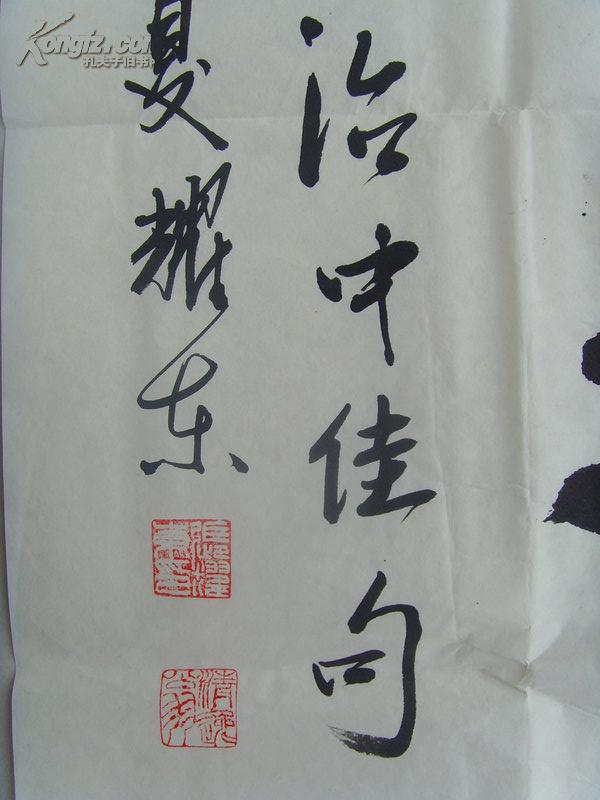 治中佳句
夏耀东
Kongfz.com
孔夫子旧书网